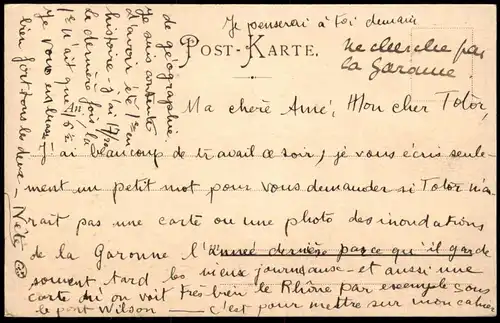 Je penserai à toi demain
POST-KARTE.
ne cherche pas
la Garonne.
Ma chère Amé, Mon cher Totor,
J'ai beaucoup de travail ce soir, je vous écris seule-
ment un petit mot pour vous demander si Totor n'au
rait pas une carte ou une photo des inondations
de la Garonne l'année dernière parce qu'il garde
souvent tard les vieux journeaux - et aussi une
carte où on voit très bien le Rhône par exemple sous
le pont Wilson — c'est pour mettre sur mon cahier
de géographie.
Je suis contente
d'avoir été 1ère en
histoire - j'ai 17/20
la dernière fois, la
1ère n'ait que 16½
Je vous embrasse
bien fort tous les deux - Nête